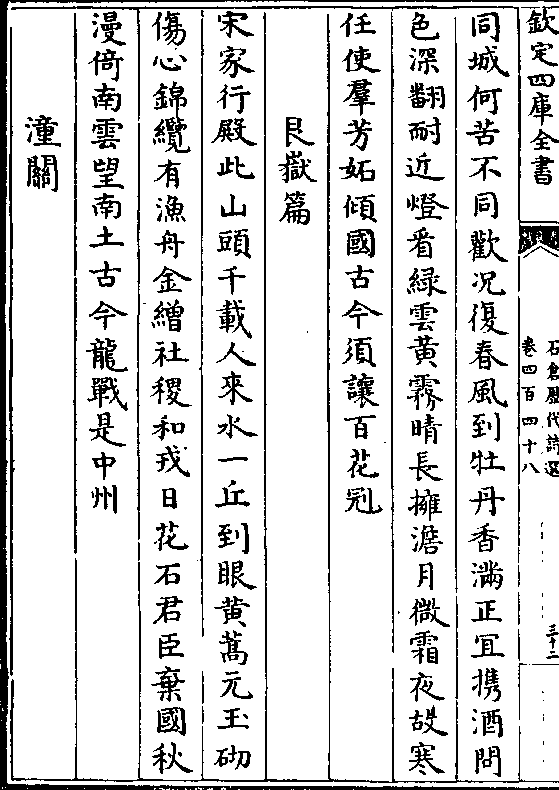 欽定四庫全書
石倉歷代詩選
卷四百四十八
三十二
同城何苦不同歡况復春風到牡丹香滿正宜携酒問
色深翻耐近燈看緑雲黄霧晴長擁澹月微霜夜故寒
任使羣芳妬傾國古今須讓百花冠
艮嶽篇
宋家行殿此山頭千載人來水一丘到眼黄蒿元玉砌
傷心錦纜有漁舟金繒社稷和戎日花石君臣棄國秋
漫倚南雲望南土古今龍戰是中州
潼關